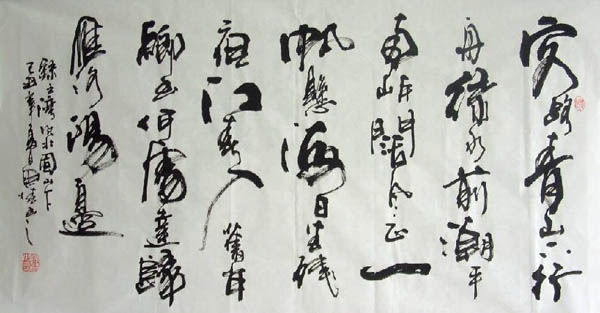 客路青山下行
舟綠水前潮平
兩岸闊風正一
帆懸海日生殘
夜江春入舊年
鄉書何處達歸
雁洛陽邊
錄王灣次北固山下
己丑年夏月